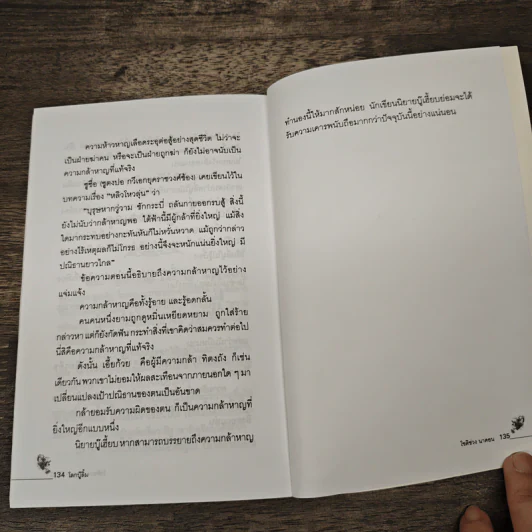 ความห้าวหาญเลือดระอุต่อสู้อย่างสุดชีวิต ไม่ว่าจะ
เป็นฝ่ายฆ่าคน หรือจะเป็นฝ่ายถูกฆ่า ก็ยังไม่อาจนับเป็น
ความกล้าหาญที่แท้จริง
ซูซื่อ (ซูตงปอ กวีเอกยุคราชวงศ์ซ้อง) เคยเขียนไว้ใน
บทความเรื่อง "หลิวโหวลุ่น" ว่า
"บุรุษหากวู่วาม ชักกระบี่ ถลันกายออกรบสู้ สิ่งนี้
ยังไม่นับว่ากล้าหาญพอ ใต้ฟ้านี้มีผู้กล้าที่ยิ่งใหญ่ แม้สิ่ง
ใดมากระทบอย่างกะทันหันก็ไม่หวั่นหวาด แม้ถูกว่ากล่าว
อย่างไร้เหตุผลก็ไม่โกรธ อย่างนี้จึงจะหนักแน่นยิ่งใหญ่ มี
ปณิธานยาวไกล"
ข้อความตอนนี้อธิบายถึงความกล้าหาญไว้อย่าง
แจ่มแจ้ง
ความกล้าหาญคือทั้งรู้อาย และรู้อดกลั้น
คนคนหนึ่งยามถูกดูหมิ่นเหยียดหยาม ถูกใส่ร้าย
กล่าวหา แต่ก็ยังกัดฟัน กระทำสิ่งที่เขาคิดว่าสมควรทำต่อไป
นี่สิคือความกล้าหาญที่แท้จริง
ดังนั้น เอี้ยก้วย คือผู้มีความกล้า ทิตงถัง ก็เช่น
เดียวกัน พวกเขาไม่ยอมให้ผลสะเทือนจากภายนอกใด ๆ มา
เปลี่ยนแปลงเป้าปณิธานของตนเป็นอันขาด
กล้ายอมรับความผิดของตน ก็เป็นความกล้าหาญที่
ยิ่งใหญ่อีกแบบหนึ่ง
นิยายบู๊เฮี้ยบ หากสามารถบรรยายถึงความกล้าหาญ
134 โลกบู๊ลิ้ม
ทำนองนี้ให้มากสักหน่อย นักเขียนนิยายบู๊เฮี้ยบย่อมจะได้
รับความเคารพนับถือมากกว่าปัจจุบันนี้อย่างแน่นอน
135